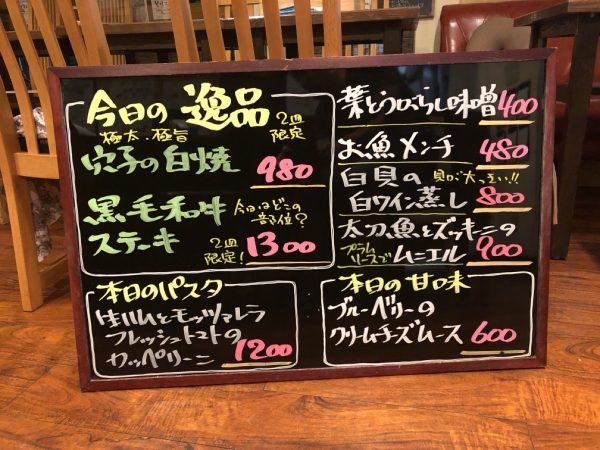 今日の 逸品
極太、極旨
2皿
限定
穴子の白焼
980
黒毛和牛
今日はどこの
部位?
ステーキ
2皿
限定!
1300
葉とうがらし味噌 400
お魚メンチ 480
白貝の
貝が大っきい!!
白ワイン蒸し 800
太刀魚とズッキーニの
プラム
ソースで
ムニエル 900
本日のパスタ
生ハムとモッツァレラ
フレッシュトマトの
カッペリーニ 1200
本日の甘味
ブルーベリーの
クリームチーズムース 600